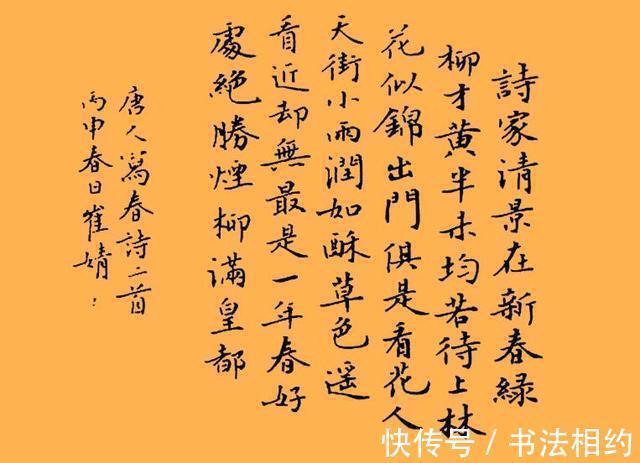 詩家清景在新春緑
柳才黄半未均若待上林
花似錦出門俱是看花人
天街小雨潤如酥草色遥
看近却無最是一年春好
處絶勝煙柳滿皇都
唐人寫春詩二首
丙申春日崔婧
快传号/书法相约